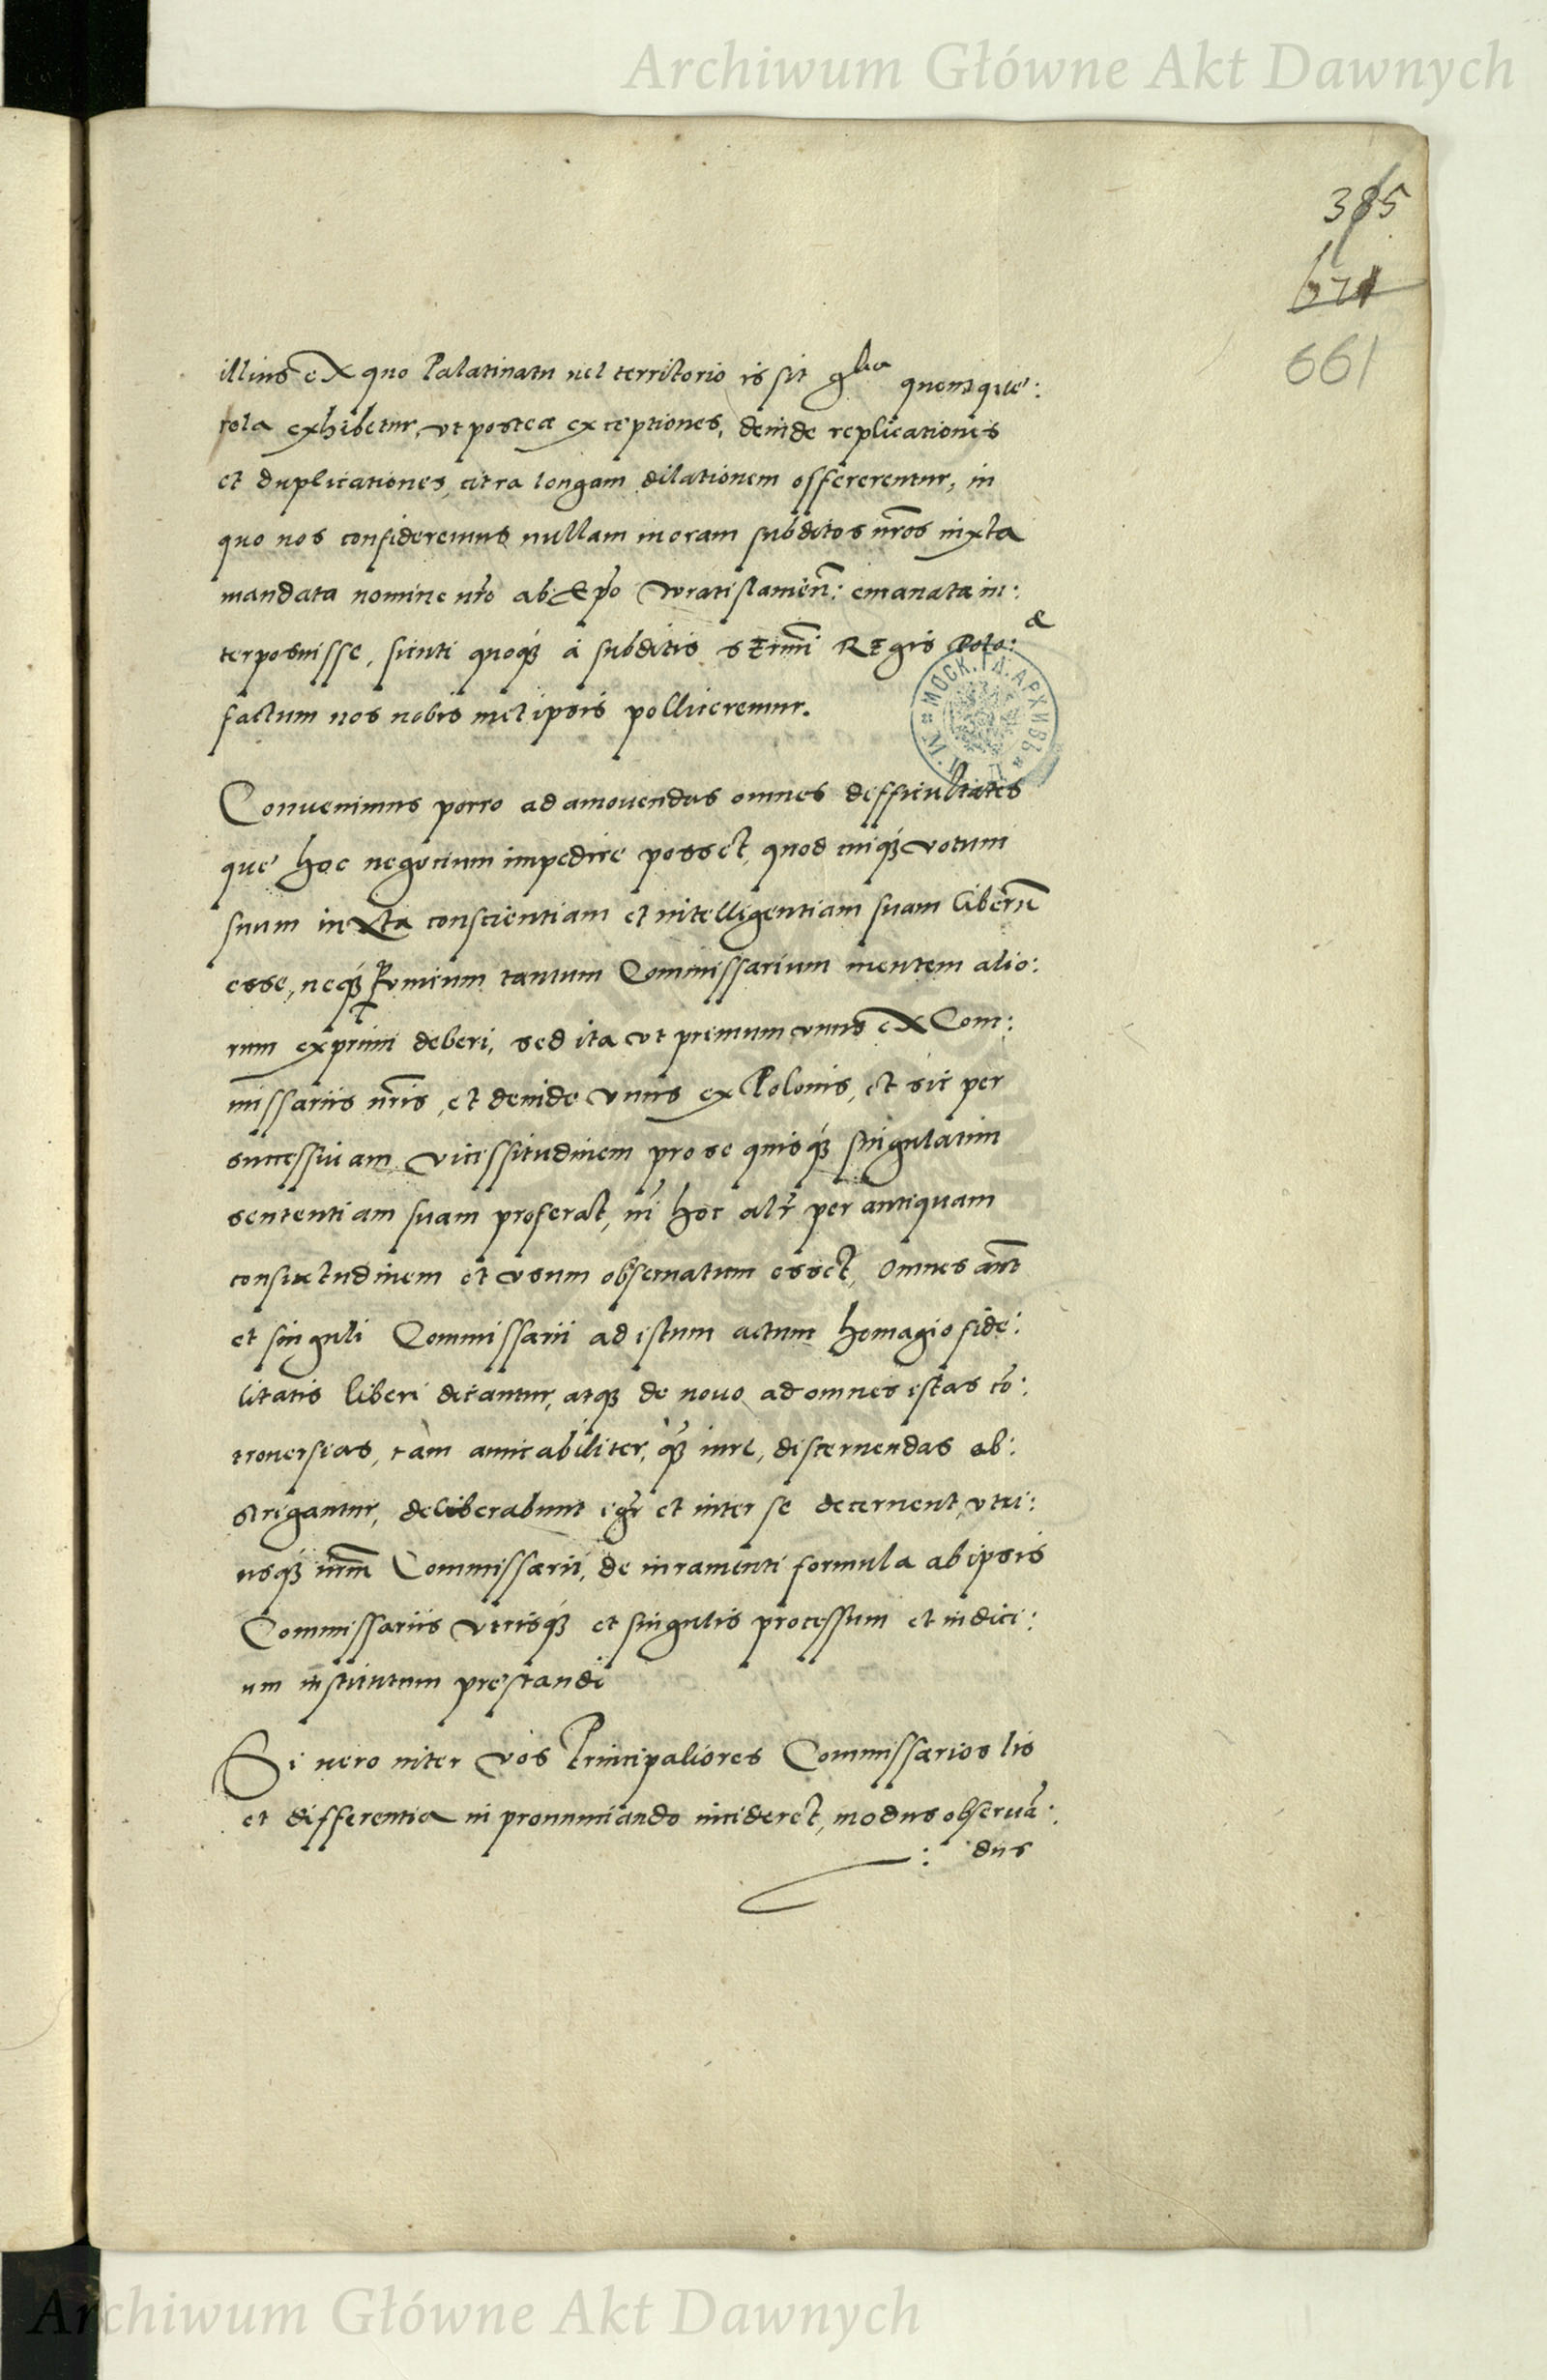 Archiwum Główne Akt Dawnych
385
671
661
illius ex quo Palatinatu uel territorio is sit qͣ quemque:
rola exhibetur, vt postea exceptiones, deinde replicationes
et duplicationes, citra longam dilationem offererentur, in
quo nos consideremus nullam moram subditos nr̄os iuxta
mandata nomine nr̄o ab Ep̄o Wratislauien̄: emanata in:
terposuisse, sicuti quoq́ȝ á subditis sermi Regis Polo: &
factum nos nobis metipsis polliceremur.
МОСК. ГЛ. АРХИВЪ М. И. Д.
Conuenimus porro ad amouendas omnes difficultates
que hoc negocium impedire posset, quod cuiq́ȝ votum
suum iuxta conscientiam et intelligentiam suam liberū
esse, neq́ȝ ꝑ vnicum tantum Commissarium mentem alio:
rum exprimi deberi, sed ita vt primum vnus ex Com:
missariis nr̄is, et deinde vnus ex Polonis, et sic per
successiuam vicissitudinem pro se quisq́ȝ singulatim
sententiam suam proferat, ni hoc alr̄ per antiquam
consuetudinem et vsum obseruatum esset, Omnes aūt
et singuli Commissarii ad istum actum homagio fide:
litatis liberi dicantur, atqȝ de nouo ad omnes istas cō:
trouersias, tam amicabiliter, q̄ȝ iure, discernendas ab:
strigantur, deliberabunt igr̄ et inter se decernent, vtri:
usq́ȝ nr̄m Commissarii, de iuramenti formula ab ipsis
Commissariis vtrisq́ȝ et singulis processum et iudici:
um institutum prestandi
Si uero inter vos Principaliores Commissarios lis
et differentia in pronunciando incideret, modus obseruā:
: dus
Archiwum Główne Akt Dawnych